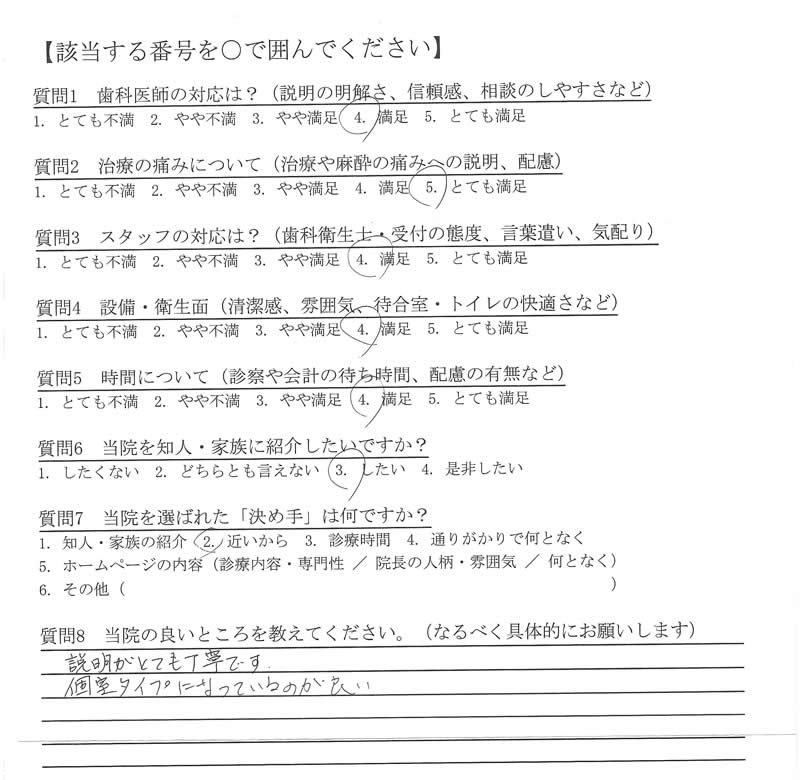 【該当する番号を○で囲んでください】
質問1 歯科医師の対応は？（説明の明解さ、信頼感、相談のしやすさなど）
1. とても不満 2. やや不満 3. やや満足 4. 満足 5. とても満足
質問2 治療の痛みについて（治療や麻酔の痛みへの説明、配慮）
1. とても不満 2. やや不満 3. やや満足 4. 満足 5. とても満足
質問3 スタッフの対応は？（歯科衛生士・受付の態度、言葉遣い、気配り）
1. とても不満 2. やや不満 3. やや満足 4. 満足 5. とても満足
質問4 設備・衛生面（清潔感、雰囲気、待合室・トイレの快適さなど）
1. とても不満 2. やや不満 3. やや満足 4. 満足 5. とても満足
質問5 時間について（診察や会計の待ち時間、配慮の有無など）
1. とても不満 2. やや不満 3. やや満足 4. 満足 5. とても満足
質問6 当院を知人・家族に紹介したいですか？
1. したくない 2. どちらとも言えない 3. したい 4. 是非したい
質問7 当院を選ばれた「決め手」は何ですか？
1. 知人・家族の紹介 2. 近いから 3. 診療時間 4. 通りがかりで何となく
5. ホームページの内容（診療内容・専門性 ／ 院長の人柄・雰囲気 ／ 何となく）
6. その他（ ）
質問8 当院の良いところを教えてください。（なるべく具体的にお願いします）
説明がとても丁寧です.
個室タイプになっているのが良い